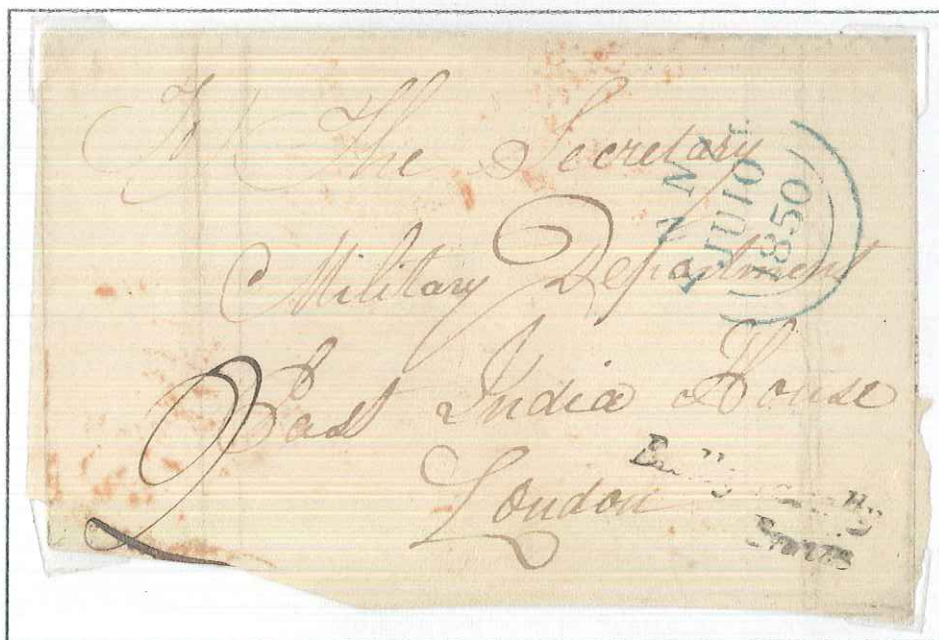 To / The Secretary
Military Department
East India House
London
2
JU 10
1850